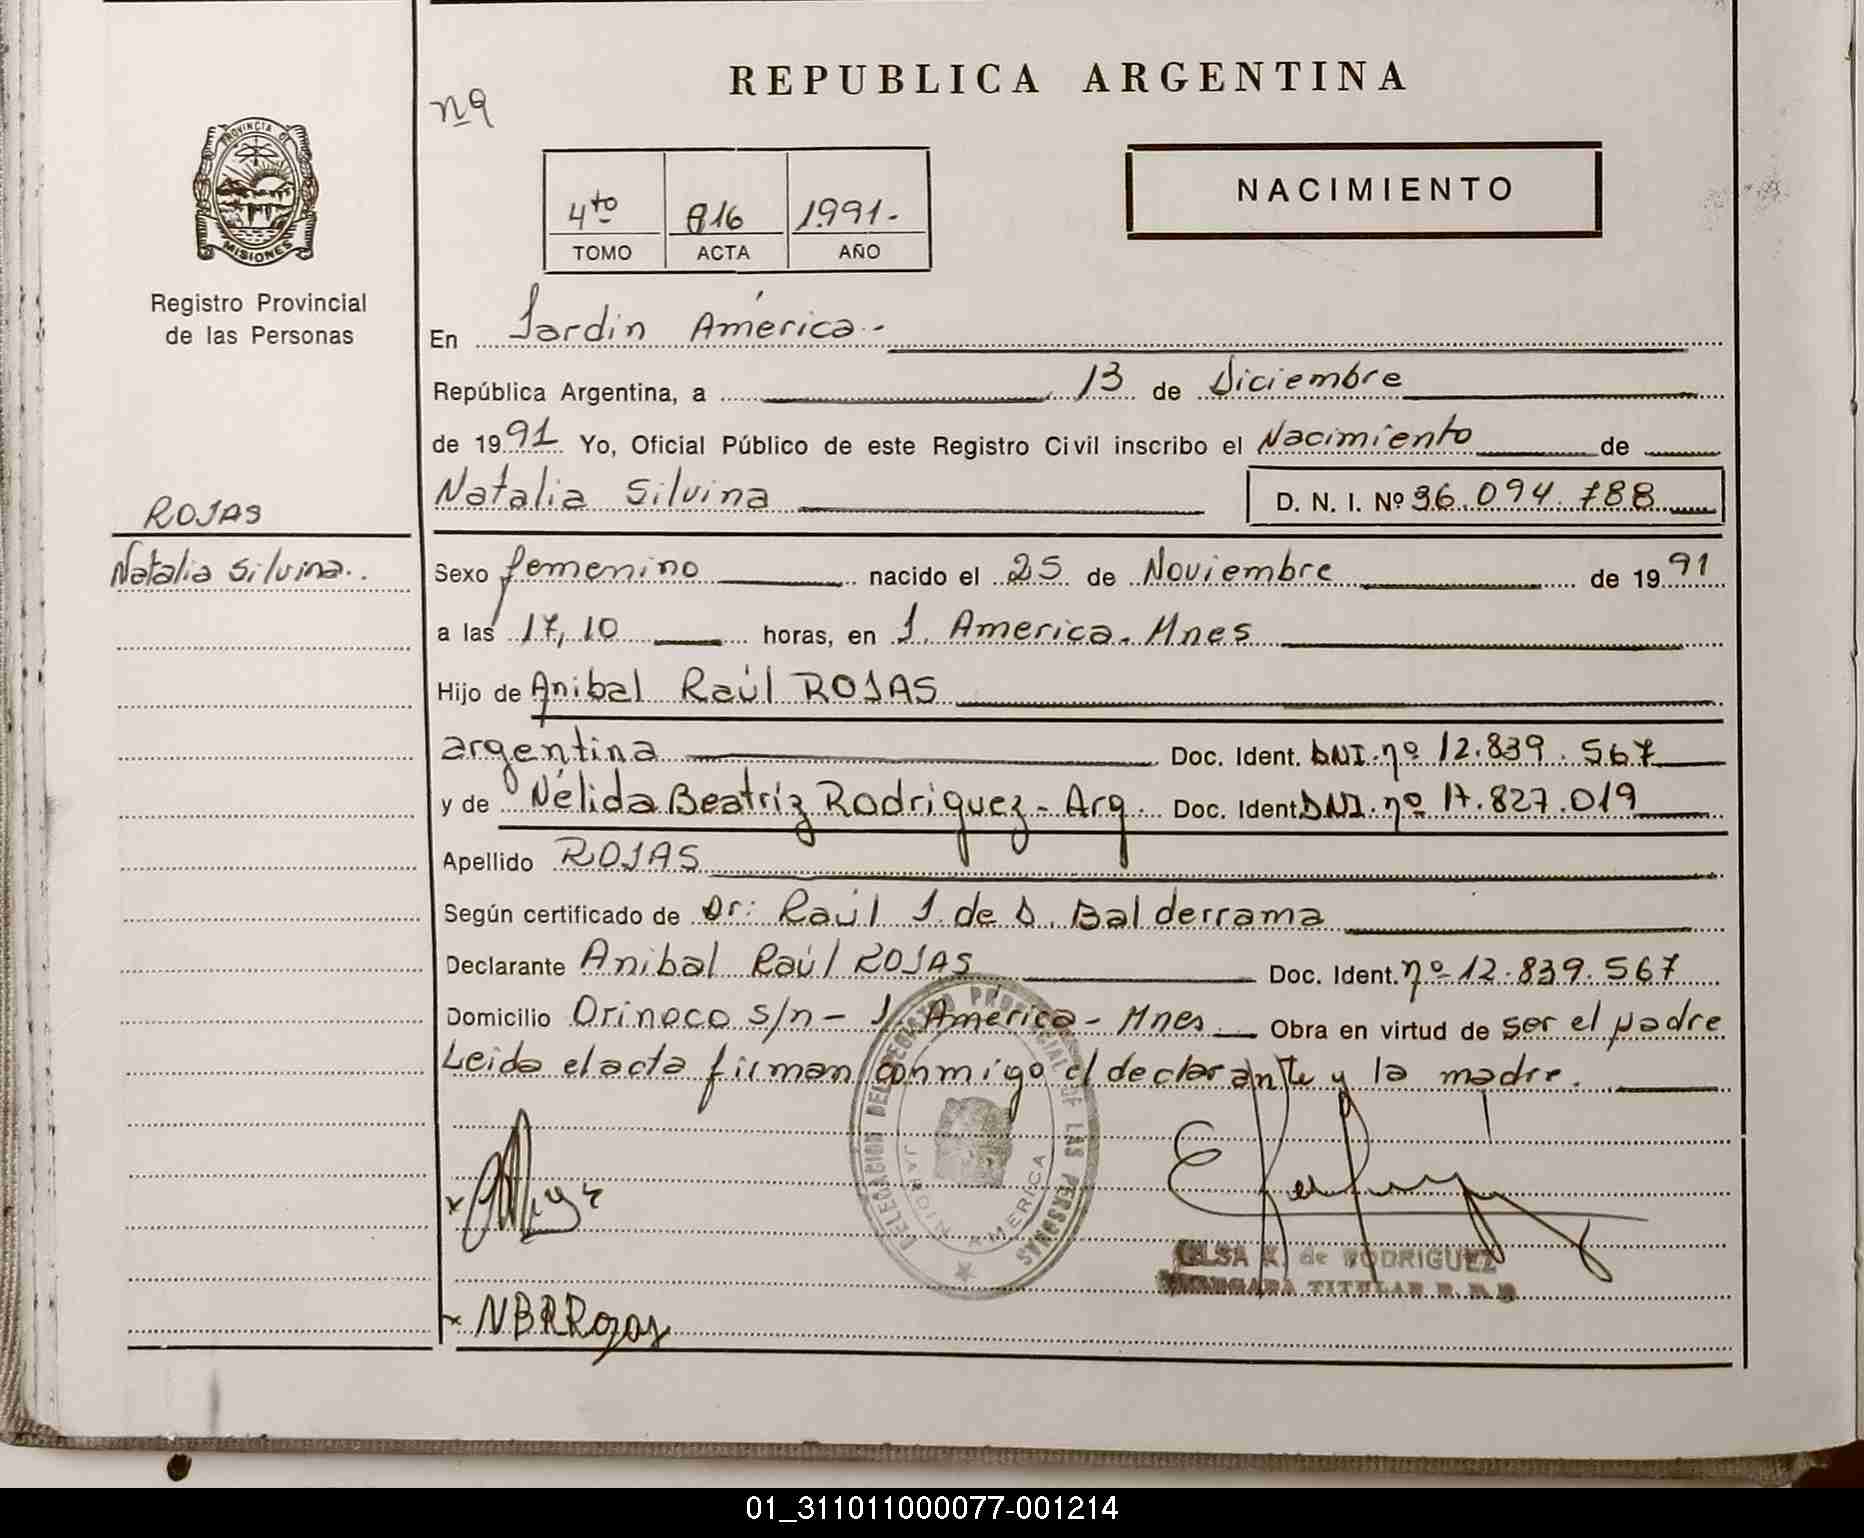 REPUBLICA ARGENTINA
nº
PROVINCIA DE
MISIONES
Registro Provincial
de las Personas
NACIMIENTO
4to 816 1991.-
TOMO ACTA AÑO
En Jardin América.-
República Argentina, a 13 de Diciembre
de 1991 Yo, Oficial Público de este Registro Civil inscribo el Nacimiento de
Natalia Silvina D. N. I. Nº 36.094.788
ROJAS
Natalia Silvina..
Sexo femenino nacido el 25 de Noviembre de 1991
a las 17,10 horas, en J. America. Mnes
Hijo de Anibal Raúl ROJAS
argentina Doc. Ident. DNI. nº 12.839.567
y de Nélida Beatriz Rodriguez - Arg. Doc. Ident DNI. nº 17.827.019
Apellido ROJAS
Según certificado de Dr: Raúl J. de D. Balderrama
Declarante Anibal Raúl ROJAS Doc. Ident. nº 12.839.567
Domicilio Orinoco s/n - J. América - Mnes Obra en virtud de ser el padre
Leida el acta firman conmigo el declarante y la madre.
DELEGACION DEL REGISTRO PROVINCIAL DE LAS PERSONAS
JARDIN AMERICA
ELSA K. de RODRIGUEZ
DELEGADA TITULAR R. P. P.
x NBRRojas
01_311011000077-001214